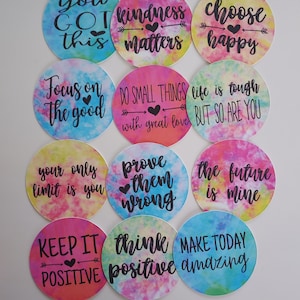 You
GOT
this
kindness
matters
choose
happy
Focus on
the good
DO SMALL THINGS
with great love
life is tough
BUT SO ARE YOU
your only
limit is you
prove
them
wrong
the future
is mine
KEEP IT
POSITIVE
think
positive
MAKE TODAY
amazing